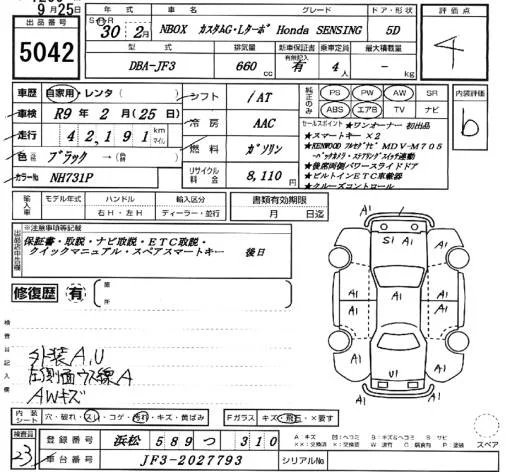 9月25日
出品番号
5042
年式 車名 グレード ドア・形状 評価点
30年 2月 NBOX カスタムG・Lターボ Honda SENSING 5D
4
型式 排気量 新車保証書 有無記入 乗車定員 最大積載量
DBA-JF3 660cc 有 4人 - kg
車歴 自家用・レンタ ( )
車検 R9年 2月(25日)
走行 42,191 km マイル
色 ブラック → (替色)
カラーNo NH731P
シフト /AT
冷房 AAC
燃料 ガソリン
リサイクル料金 8,110円
純正のみ PS PW AW SR
ABS エアB TV ナビ
内装評価
b
セールスポイント ★ワンオーナー 初出品
★スマートキー×2
★KENWOOD フルセグナビ MDV-M705
・バックカメラ・ステアリングスイッチ連動
★後席両側パワースライドドア
★ビルトインETC車載器
★クルーズコントロール
輸入車 モデル年式 ハンドル 輸入区分
年 右H・左H ディーラー・並行
書類有効期限
月 日迄
※注意事項等記載
保証書・取説・ナビ取説・ETC取説・
クイックマニュアル・スペアスマートキー 後日
修復歴 有 箇所
検査員記入欄
外装A,U
左側面ウス線A
AWキズ
内装シート 穴・破れ・スレ・コゲ・汚れ・キズ・黄ばみ
Fガラス キズ・飛石・×要す
検査員
23
登録番号 浜松 589 つ 310
車台番号 JF3-2027793 シリアルNo
A1
S1
A1
A1
A1
A1
A1
A1
A1
A1
U1
スペア